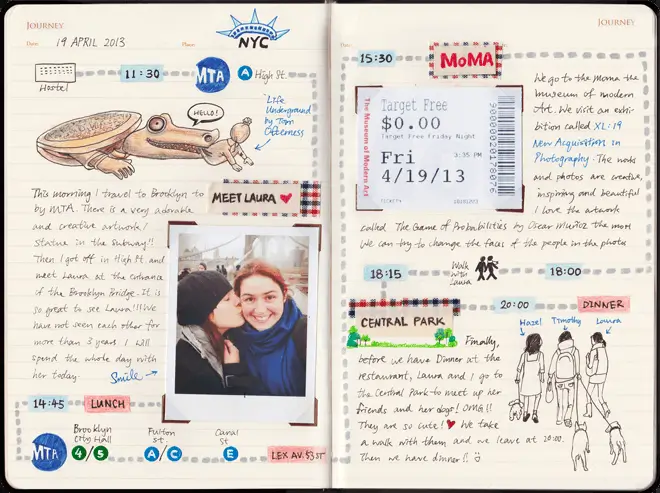 JOURNEY
Date: 19 APRIL 2013 Place:
NYC
Hostel
11:30
MTA
A High St.
"Life
Underground"
by Tom
Otterness
HELLO!
This morning I travel to Brooklyn to
by MTA. There is a very adorable
and creative artwork/
statue in the subway!!
Then I got off in High St. and
meet Laura at the entrance
of the Brooklyn Bridge. It is
so great to see Laura!!! We
have not seen each other for
more than 3 years. I will
spend the whole day with
her today.
MEET LAURA
Smile
14:45
LUNCH
MTA
Brooklyn
City Hall
4/5
Fulton
St
A/C
Canal
St
E
LEX AV. $3 ST
JOURNEY
15:30
MoMA
The Museum of Modern Art
Target Free
$0.00
Target Free Friday Night
Fri
3:35 PM
4/19/13
We go to the Moma the
museum of modern
Art. We visit an exhi-
bition called XL:19
New Acquisition in
Photography. The works
and photos are creative,
inspiring and beautiful
I love the artwork
called The Game of Probabilities by Oscar Muñoz the most
We can try to change the faces of the people in the photo
18:15
Walk
with
Laura
18:00
CENTRAL PARK
20:00
DINNER
Hazel
Timothy
Laura
Finally,
before we have Dinner at the
restaurant, Laura and I go to
the Central Park to meet up her
friends and her dogs! OMG!!
They are so cute! We take
a walk with them and we leave at 20:00.
Then we have dinner!!